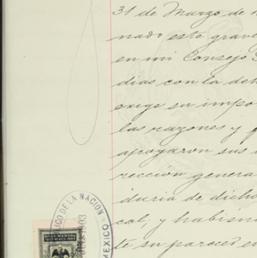 31 de Marzo de
nado este grave
en mi Consejo
dias con la de
exige su impo
las razones y
apoyaron sus
rección genera
duria de dicho
cal, y habién
te su parecer
CO DE LA NACION
MEXICO